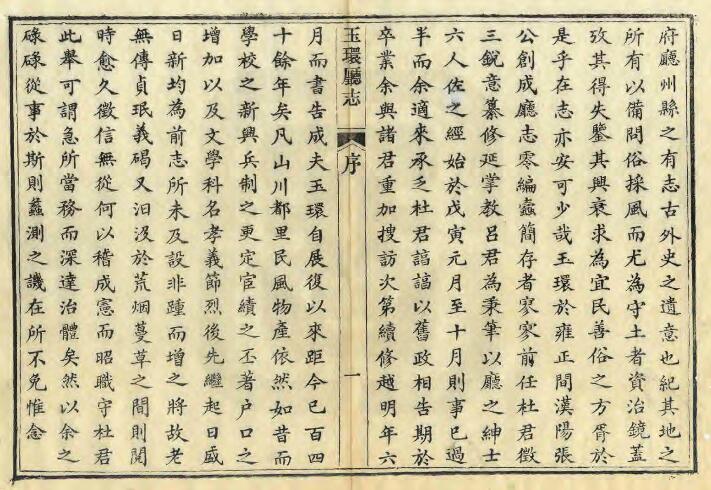 府廳州縣之有志古外史之遺意也紀其地之
所有以備問俗採風而尤為守土者資治鏡蓋
攷其得失鑒其興衰求為宜民善俗之方胥於
是乎在志亦安可少哉玉環於雍正間漢陽張
公創成廳志零編蠹簡存者寥寥前任杜君徵
三銳意纂修延掌教呂君為秉筆以廳之紳士
六人佐之經始於戊寅元月至十月則事已過
半而余適來承乏杜君諄諄以舊政相告期於
卒業余與諸君重加搜訪次第續修越明年六
玉環廳志
序
一
月而書告成夫玉環自展復以來距今已百四
十餘年矣凡山川都里民風物產依然如昔而
學校之新興兵制之更定宦績之丕著户口之
增加以及文學科名孝義節烈後先繼起日盛
日新均為前志所未及設非踵而增之將故老
無傳貞珉義碣又汨沒於荒烟蔓草之間則閱
時愈久徵信無從何以稽成憲而昭職守杜君
此舉可謂急所當務而深達治體矣然以余之
碌碌從事於斯則蠡測之譏在所不免惟念